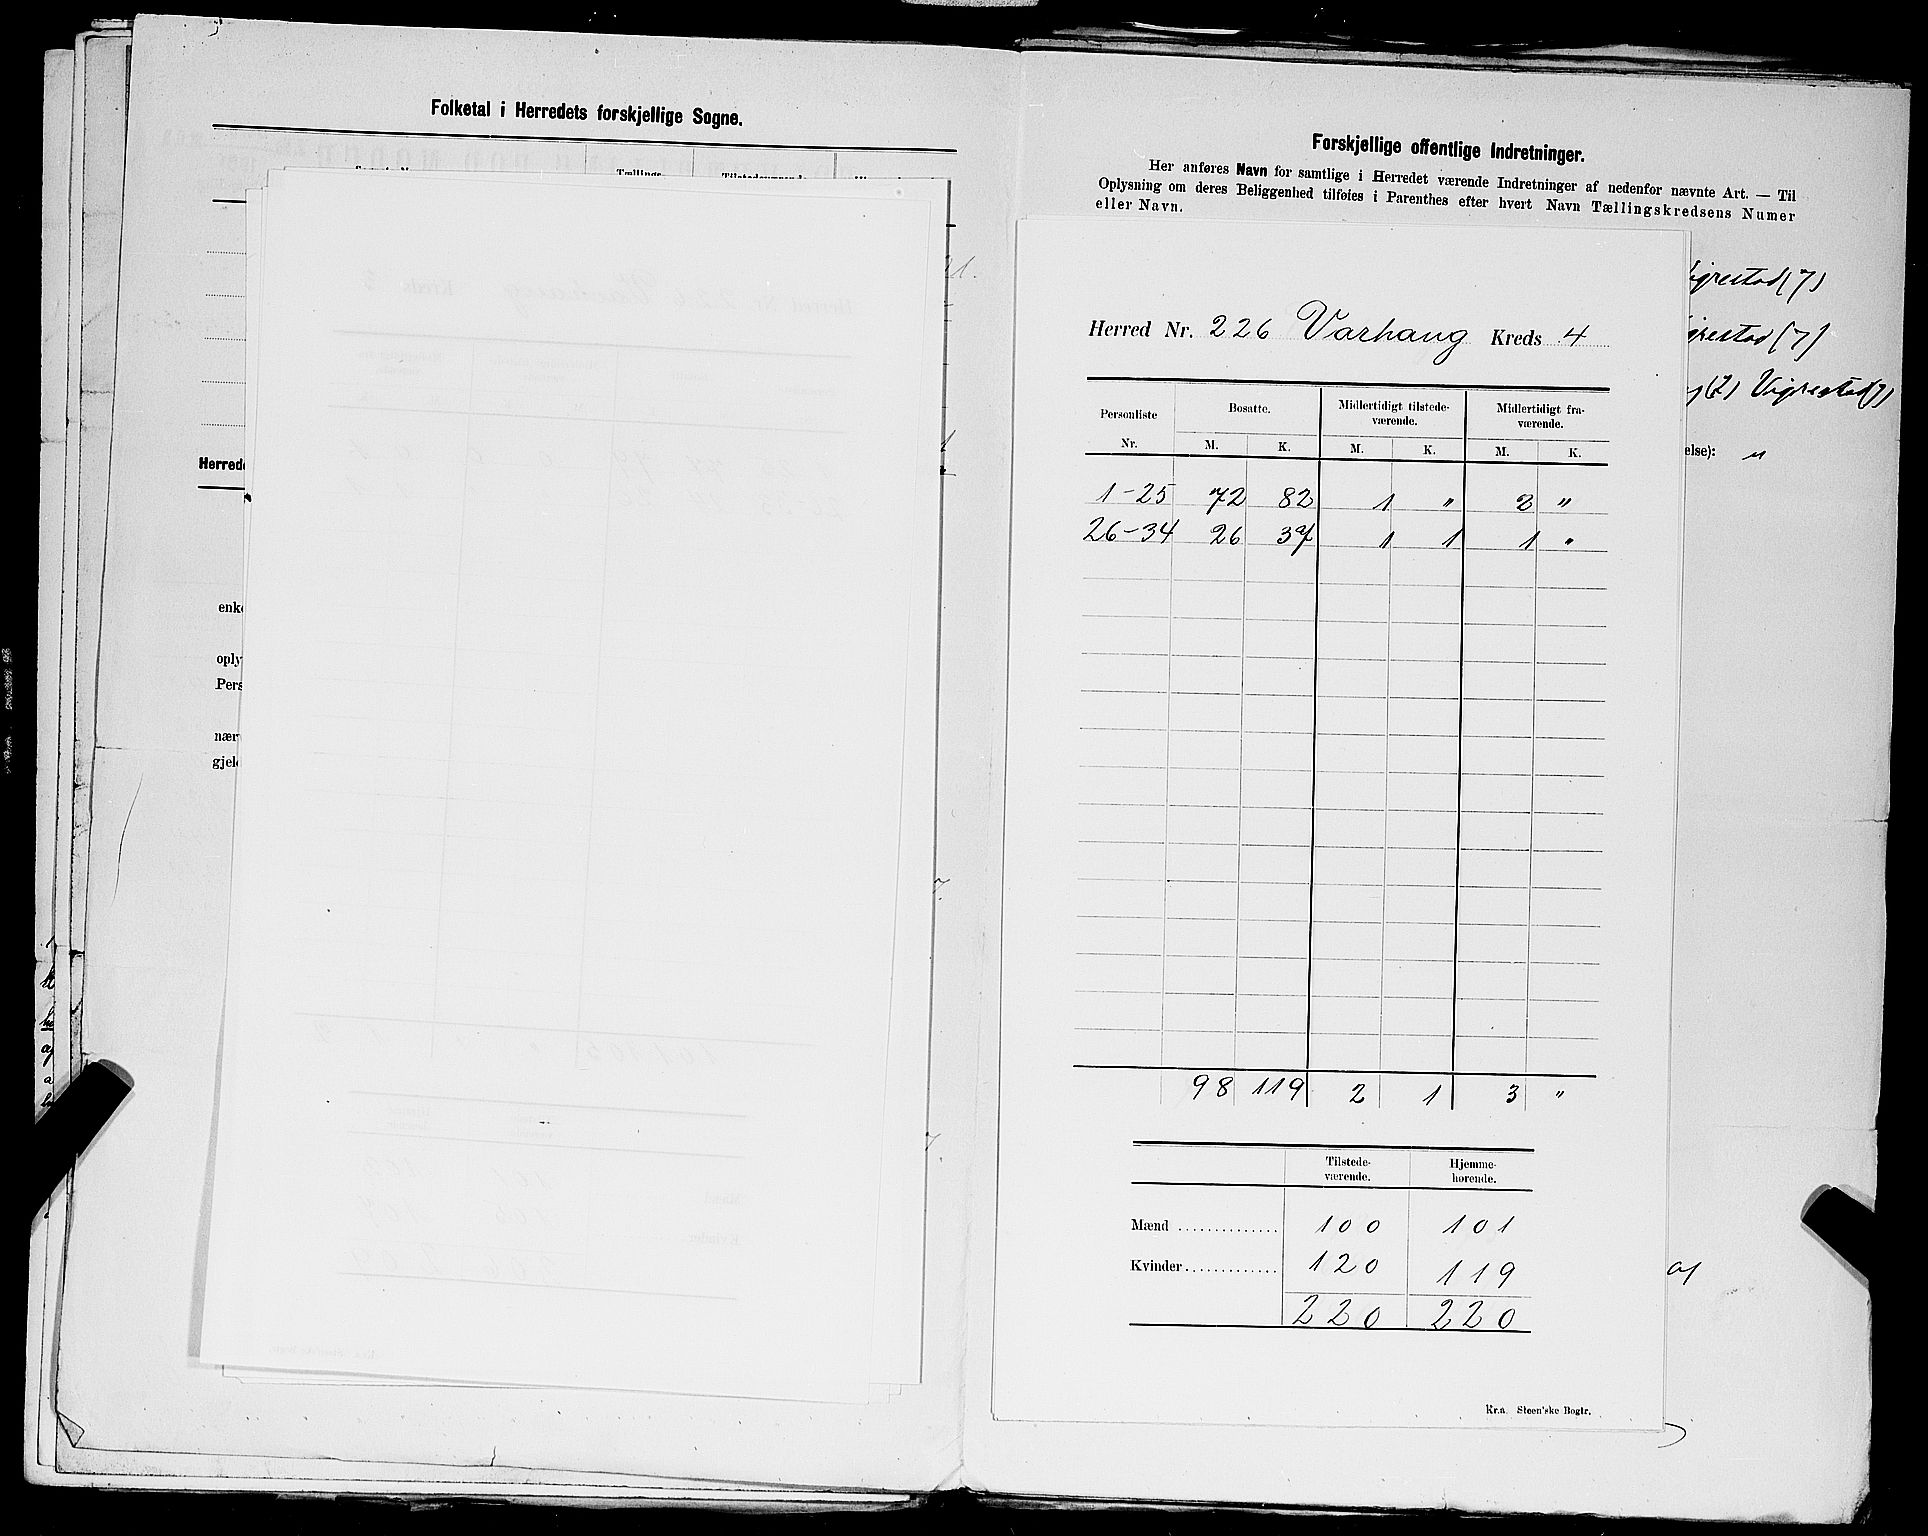 Folketal i Herredets forskjellige Sogne.
Herred
enk
oply
Pers
nær
gjeld
Forskjellige offentlige Indretninger.
Her anføres Navn for samtlige i Herredet værende Indretninger af nedenfor nævnte Art. — Til
Oplysning om deres Beliggenhed tilføies i Parenthes efter hvert Navn Tællingskredsens Numer
eller Navn.
igrestad (7)
grestad (7)
Vigrestad (7)
else): "
Herred Nr. 226 Varhaug Kreds 4
Personliste Nr. Bosatte. Midlertidigt tilstede-værende. Midlertidigt fra-værende.
M. K. M. K. M. K.
1-25 72 82 1 " 2 "
26-34 26 37 1 1 1 "
98 119 2 1 3 "
Tilstede-værende. Hjemme-hørende.
Mænd .............. 100 101
Kvinder ............. 120 119
220 220
Kr.a. Steen'ske Bogtr.